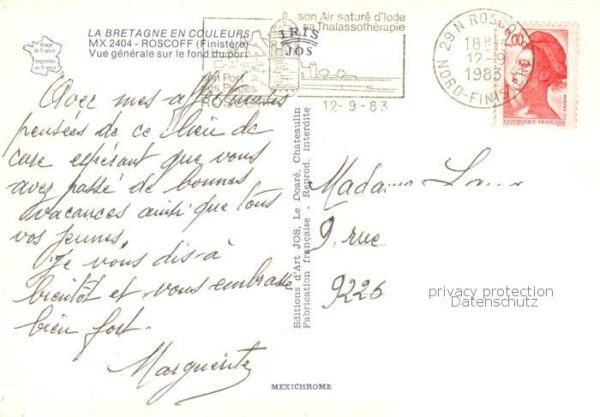 LA BRETAGNE EN COULEURS
MX 2404 - ROSCOFF (Finistère)
Vue générale sur le fond du port
Image
de France
Imprimée
en France
IRIS
JOS
son Air saturé d'Iode
sa Thalassothérapie
son Port
12-9-83
29 N ROSCOFF
18H
12-9
1983
NORD-FINISTERE
2,00
REPUBLIQUE FRANÇAISE
Avec mes affectueuses
pensées de ce lieu de
cure espérant que vous
avez passé de bonnes
vacances ainsi que tous
vos jeunes.
Je vous dis à
bientôt et vous embrasse
bien fort.
Marguerite
Editions d'Art JOS, Le Doaré, Châteaulin
Fabrication française - Reprod. interdite
MEXICHROME
Madame
9, rue
9226
privacy protection
Datenschutz